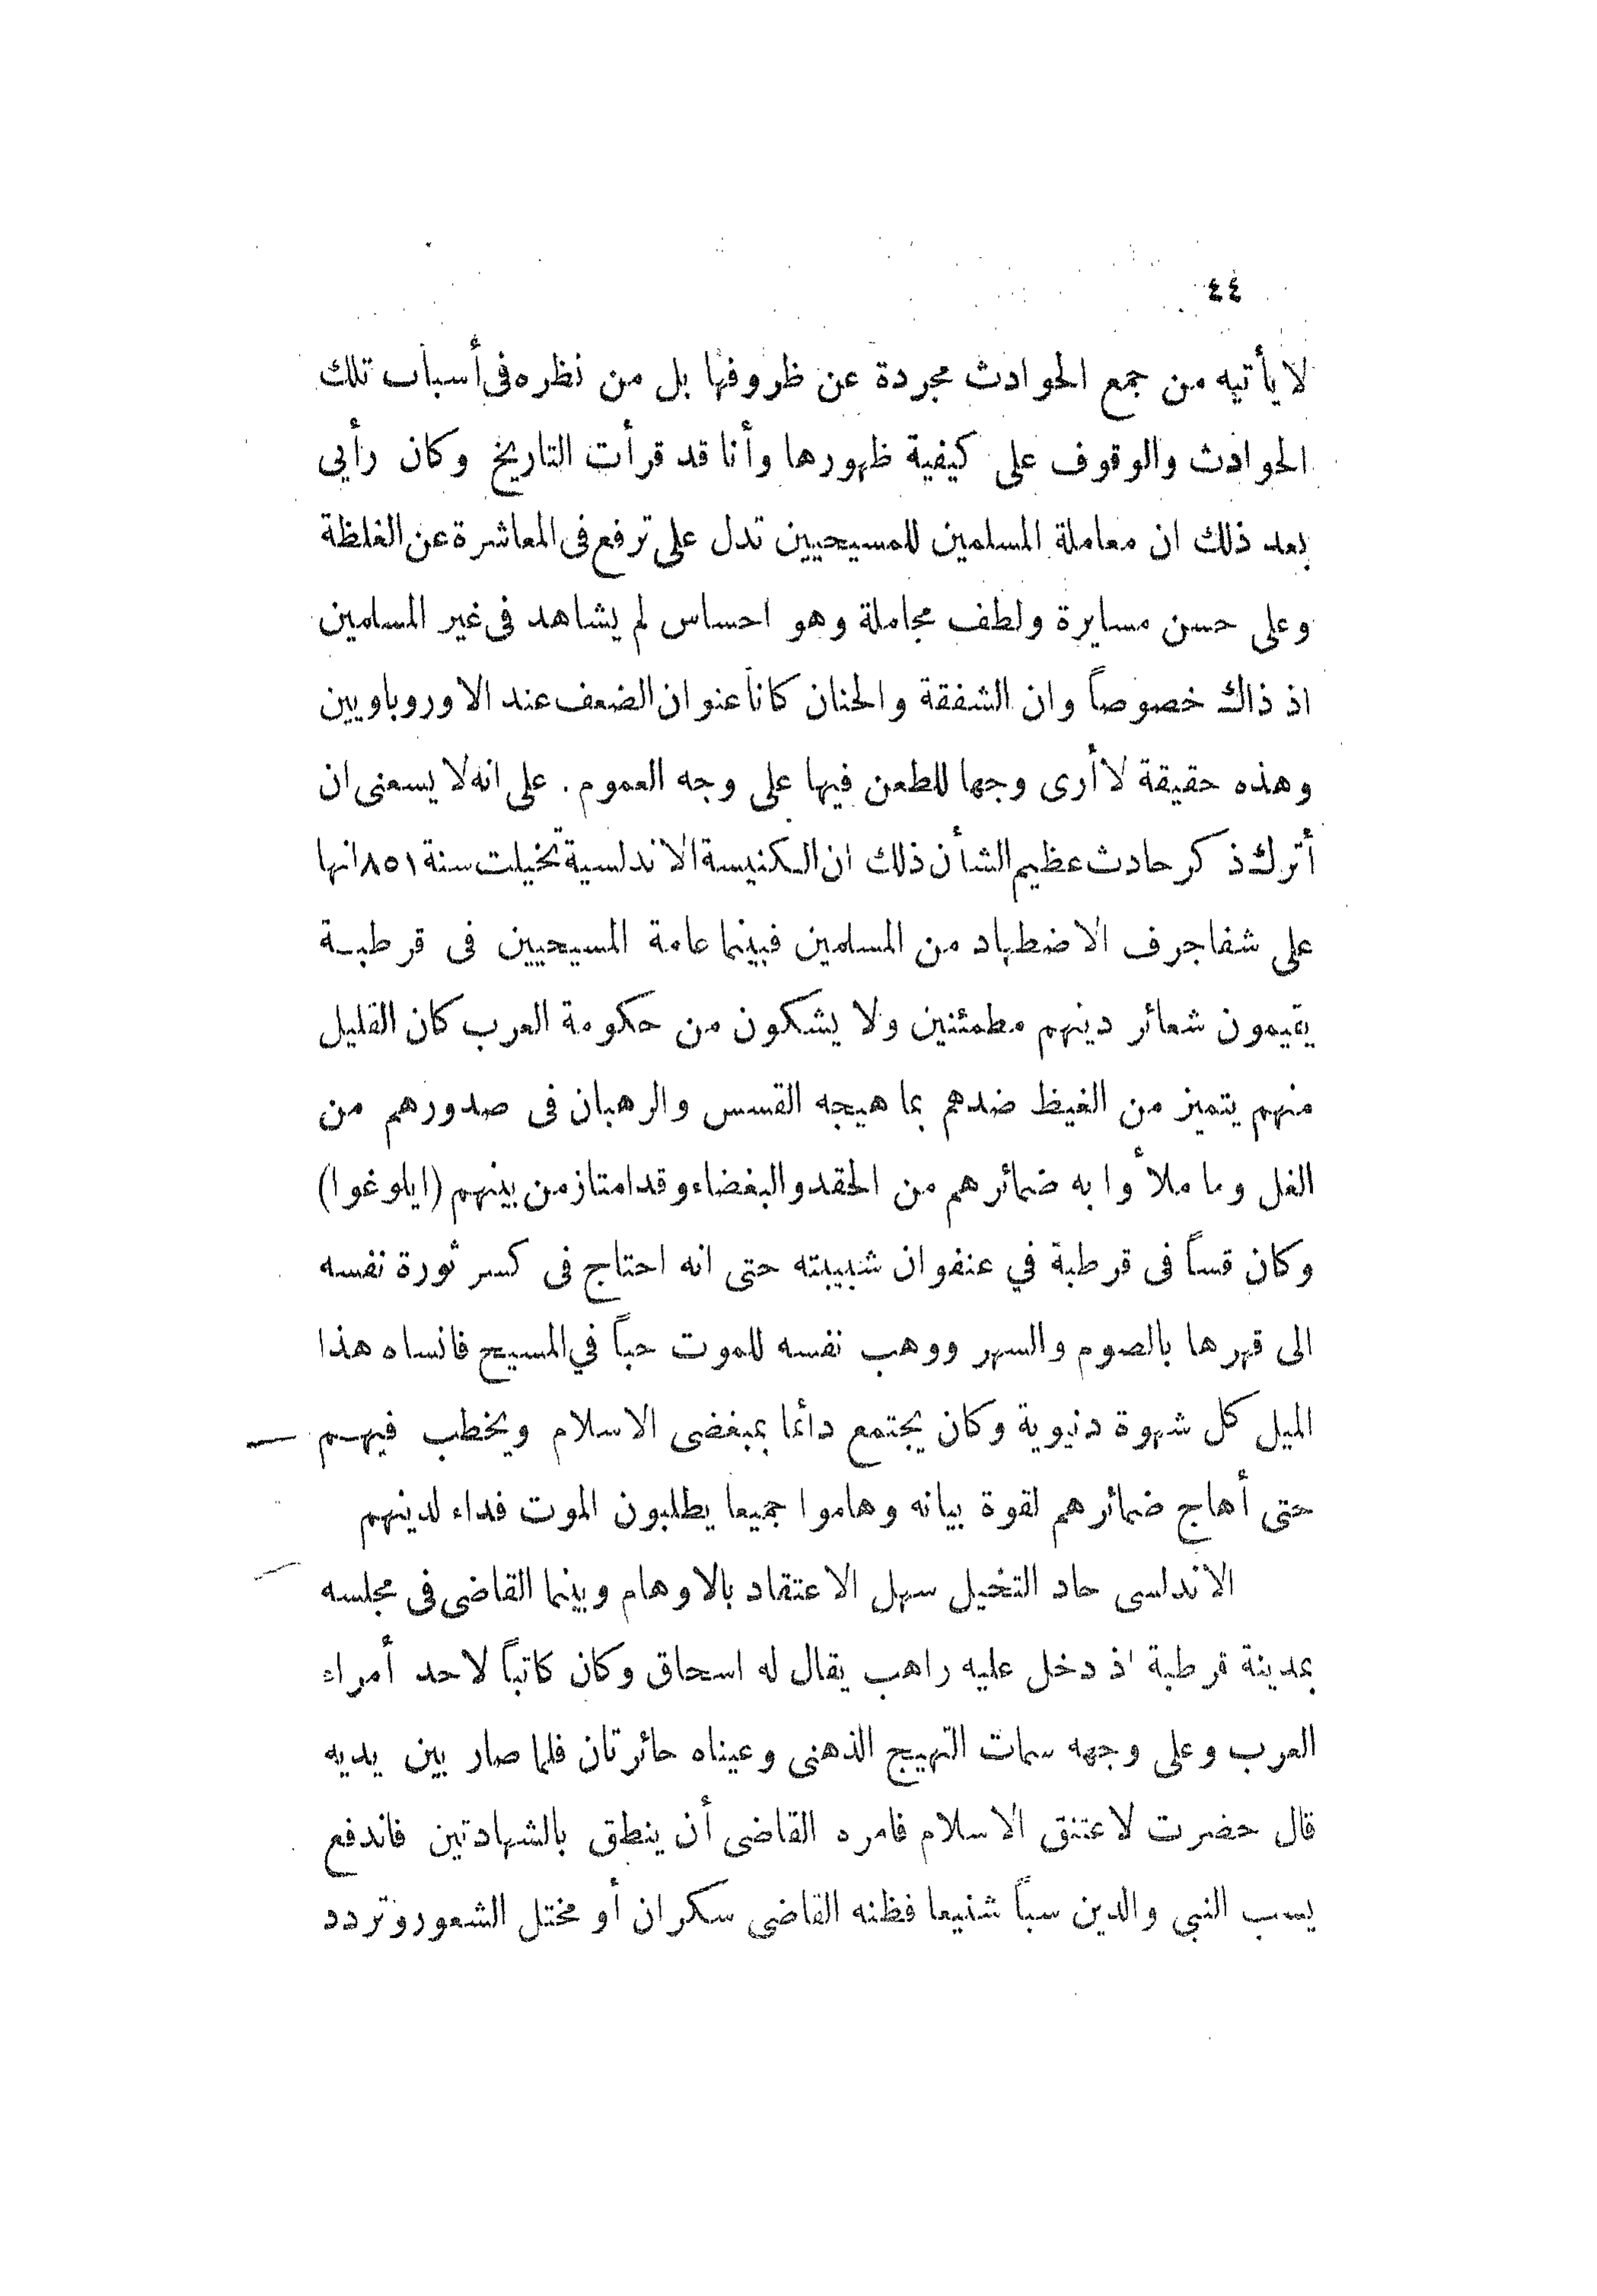 ٤٤
لا يأتيه من جمع الحوادث مجردة عن ظروفها بل من نظره فى أسباب تلك
الحوادث والوقوف على كيفية ظهورها وأنا قد قرأت التاريخ وكان رأيي
بعد ذلك ان معاملة المسلمين للمسيحيين تدل على ترفع فى المعاشرة عن الغلظة
وعلى حسن مسايرة ولطف مجاملة وهو احساس لم يشاهد فى غير المسلمين
اذ ذاك خصوصاً وان الشفقة والحنان كانا عنوان الضعف عند الاوروباويين
وهذه حقيقة لا أرى وجها للطعن فيها على وجه العموم . على انه لا يسعنى ان
أترك ذكر حادث عظيم الشأن ذلك ان الكنيسة الاندلسية تخيلت سنة ٨٥١ انها
على شفا جرف الاضطهاد من المسلمين فبينما عامة المسيحيين فى قرطبة
يقيمون شعائر دينهم مطمئنين ولا يشكون من حكومة العرب كان القليل
منهم يتميز من الغيظ ضدهم بما هيجه القسس والرهبان فى صدورهم من
الغل وما ملأوا به ضمائرهم من الحقد والبغضاء وقد امتاز من بينهم (ايلوغوا)
وكان قساً فى قرطبة في عنفوان شبيبته حتى انه احتاج فى كسر ثورة نفسه
الى قهرها بالصوم والسهر ووهب نفسه للموت حباً في المسيح فانساه هذا
الميل كل شهوة دنيوية وكان يجتمع دائما بمبغضى الاسلام ويخطب فيهم
حتى أهاج ضمائرهم لقوة بيانه وهاموا جميعا يطلبون الموت فداء لدينهم
الاندلسى حاد التخيل سهل الاعتقاد بالاوهام وبينما القاضى فى مجلسه
بمدينة قرطبة اذ دخل عليه راهب يقال له اسحاق وكان كاتباً لاحد أمراء
العرب وعلى وجهه سمات التهيج الذهنى وعيناه حائرتان فلما صار بين يديه
قال حضرت لاعتنق الاسلام فامره القاضى أن ينطق بالشهادتين فاندفع
يسب النبي والدين سباً شنيعا فظنه القاضى سكران أو مختل الشعور وتردد